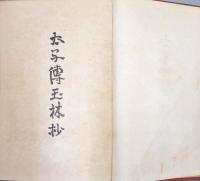 太子傳玉林抄